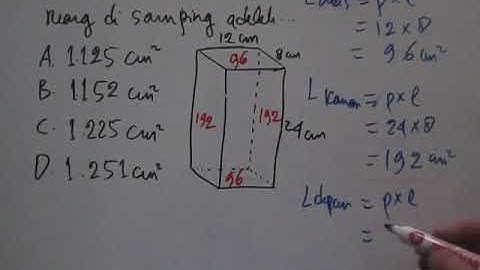 ruang di samping adalah...
A. 1.125 cm²
B. 1152 cm²
C. 1.225 cm²
D. 1.251 cm²
12 cm
8 cm
96
192
192
24 cm
96
= 12 x 8
= 96 cm²
L kanan = p x l
= 24 x 8
= 192 cm²
L depan = p x l
=